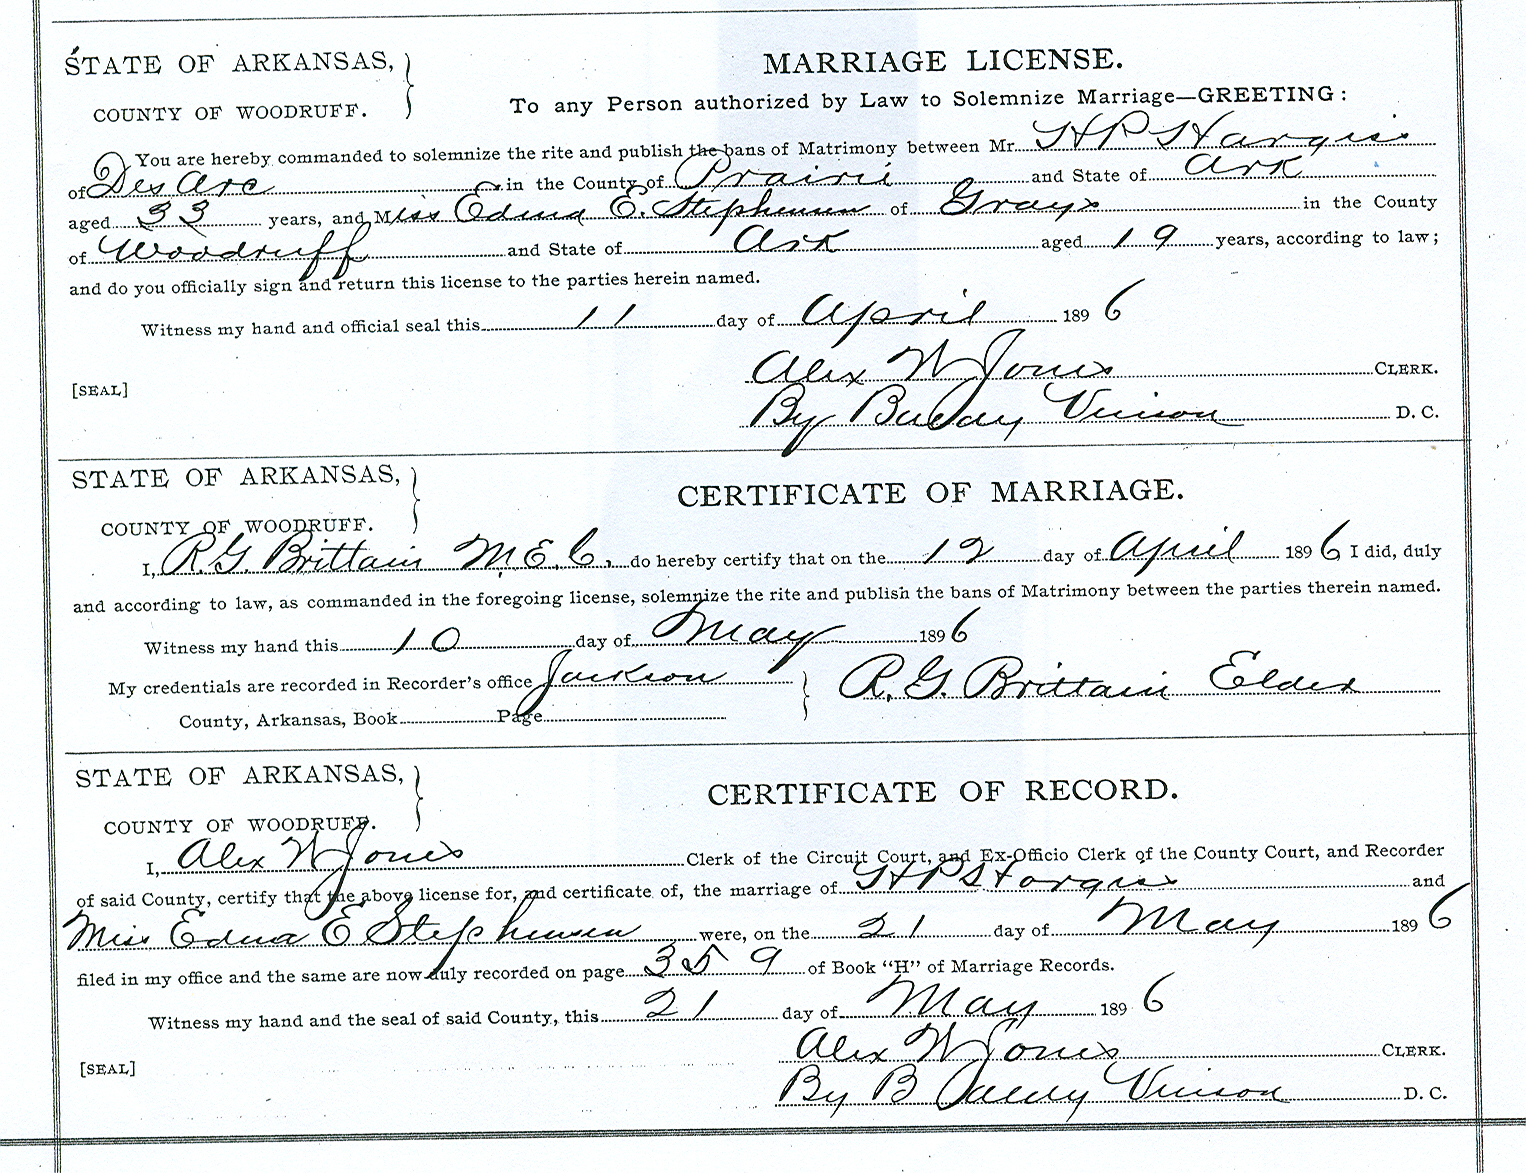 STATE OF ARKANSAS, MARRIAGE LICENSE.
COUNTY OF WOODRUFF. To any Person authorized by Law to Solemnize Marriage—GREETING:
You are hereby commanded to solemnize the rite and publish the bans of Matrimony between Mr. H P Hargis
of Des Arc in the County of Prairie and State of Ark
aged 33 years, and Miss Edna E. Stephenson of Grays in the County
of Woodruff and State of Ark aged 19 years, according to law;
and do you officially sign and return this license to the parties herein named.
Witness my hand and official seal this 11 day of April 1896
Alex W Jones CLERK.
[SEAL]
By Vinson D. C.
STATE OF ARKANSAS, CERTIFICATE OF MARRIAGE.
COUNTY OF WOODRUFF.
I, R. G. Brittain M. E. C., do hereby certify that on the 12 day of April 1896 I did, duly
and according to law, as commanded in the foregoing license, solemnize the rite and publish the bans of Matrimony between the parties therein named.
Witness my hand this 10 day of May 1896
My credentials are recorded in Recorder's office Jackson R. G. Brittain Elder
County, Arkansas, Book Page
STATE OF ARKANSAS, CERTIFICATE OF RECORD.
COUNTY OF WOODRUFF.
I, Alex W Jones Clerk of the Circuit Court, and Ex-Officio Clerk of the County Court, and Recorder
of said County, certify that the above license for, and certificate of, the marriage of H P Hargis and
Miss Edna E Stephenson were, on the 21 day of May 1896
filed in my office and the same are now duly recorded on page 359 of Book "H" of Marriage Records.
Witness my hand and the seal of said County, this 21 day of May 1896
Alex W Jones CLERK.
[SEAL]
By B Vinson D. C.